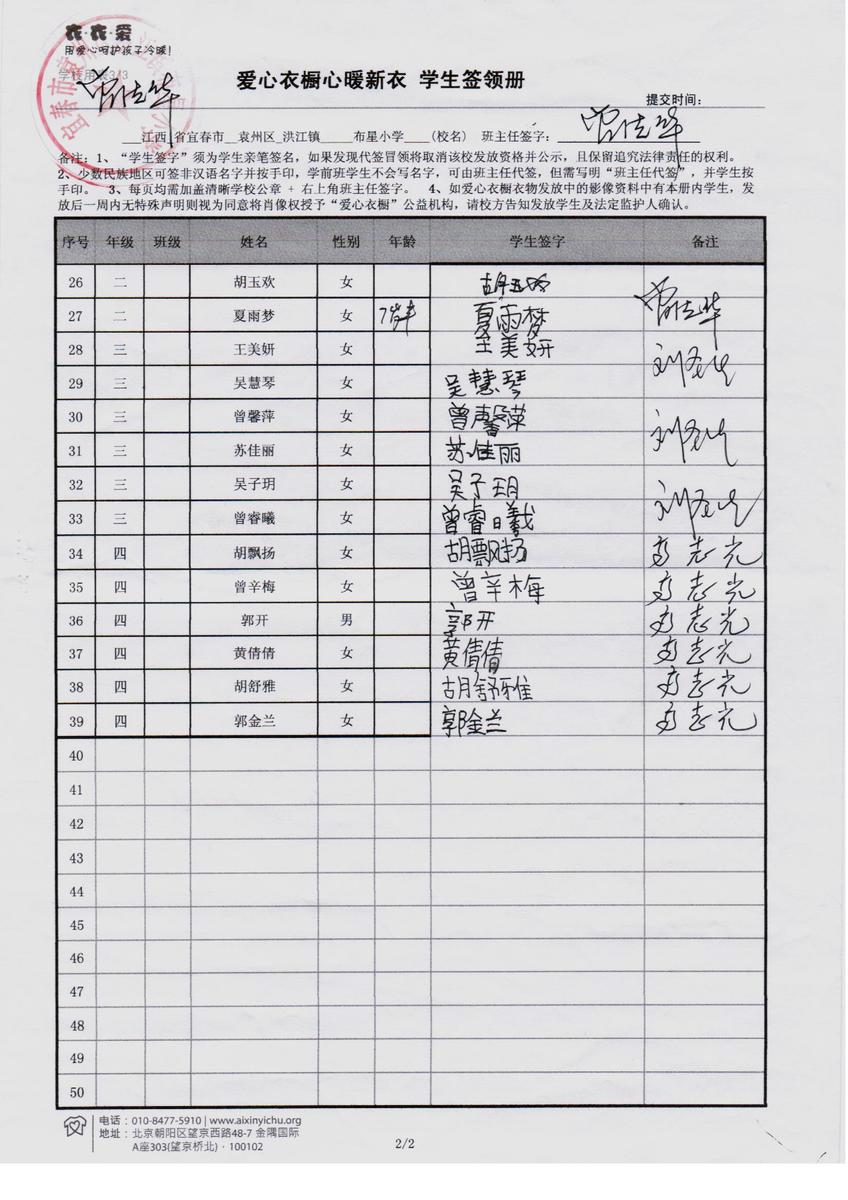 衣·衣·爱
用爱心呵护孩子冷暖!
学校用表3/3
爱心衣橱心暖新衣 学生签领册
提交时间:
___江西_省宜春市__袁州区_洪江镇_____布星小学____(校名) 班主任签字:
备注:1、“学生签字”须为学生亲笔签名,如果发现代签冒领将取消该校发放资格并公示,且保留追究法律责任的权利。
2、少数民族地区可签非汉语名字并按手印,学前班学生不会写名字,可由班主任代签,但需写明“班主任代签”,并学生按
手印。 3、每页均需加盖清晰学校公章 + 右上角班主任签字。 4、如爱心衣橱衣物发放中的影像资料中有本册内学生,发
放后一周内无特殊声明则视为同意将肖像权授予“爱心衣橱”公益机构,请校方告知发放学生及法定监护人确认。
序号 年级 班级 姓名 性别 年龄 学生签字 备注
26 二 胡玉欢 女
27 二 夏雨梦 女 7岁半 夏雨梦
28 三 王美妍 女 王美妍
29 三 吴慧琴 女 吴慧琴
30 三 曾馨萍 女 曾馨萍
31 三 苏佳丽 女 苏佳丽
32 三 吴子玥 女 吴子玥
33 三 曾睿曦 女 曾睿曦
34 四 胡飘扬 女 胡飘扬
35 四 曾辛梅 女 曾辛梅
36 四 郭开 男 郭开
37 四 黄倩倩 女 黄倩倩
38 四 胡舒雅 女 胡舒雅
39 四 郭金兰 女 郭金兰
40
41
42
43
44
45
46
47
48
49
50
电话:010-8477-5910 | www.aixinyichu.org
地址:北京朝阳区望京西路48-7 金隅国际
A座303(望京桥北)· 100102
2/2